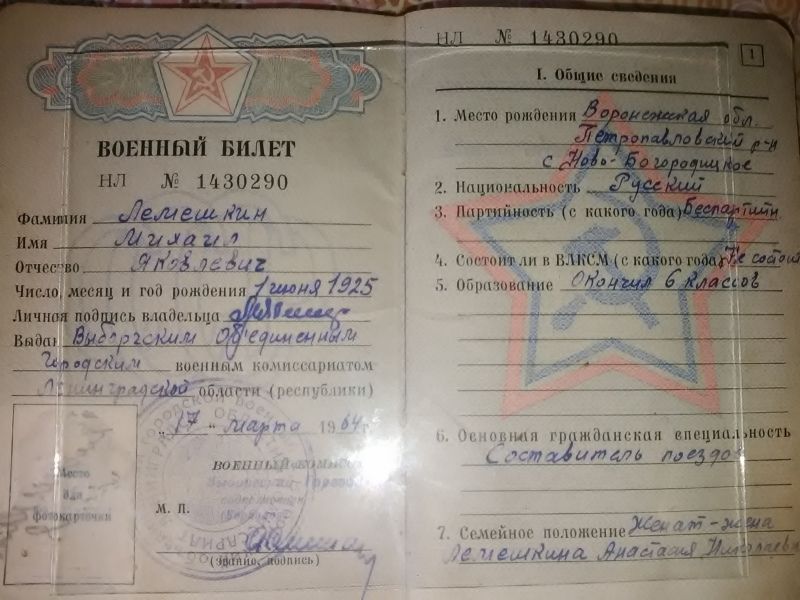 ВОЕННЫЙ БИЛЕТ
НЛ № 1430290
Фамилия Лемешкин
Имя Михаил
Отчество Яковлевич
Число, месяц и год рождения 1 июня 1925
Личная подпись владельца
Выдан Выборгским Об'единенным
Городским военным комиссариатом
Ленинградской области (республики)
"17" марта 1964 г.
ВОЕННЫЙ КОМИССАР
М. П.
(звание, подпись)
Место
для
фотокарточки
НЛ № 1430290
1
I. Общие сведения
1. Место рождения Воронежская обл.
Петропавловский р-н
с Ново-Богородицкое
2. Национальность Русский
3. Партийность (с какого года) Беспартийн
4. Состоит ли в ВЛКСМ (с какого года) Не состоит
5. Образование Окончил 6 классов
6. Основная гражданская специальность
Составитель поездов
7. Семейное положение Женат-жена
Лемешкина Анастасия Николаевна